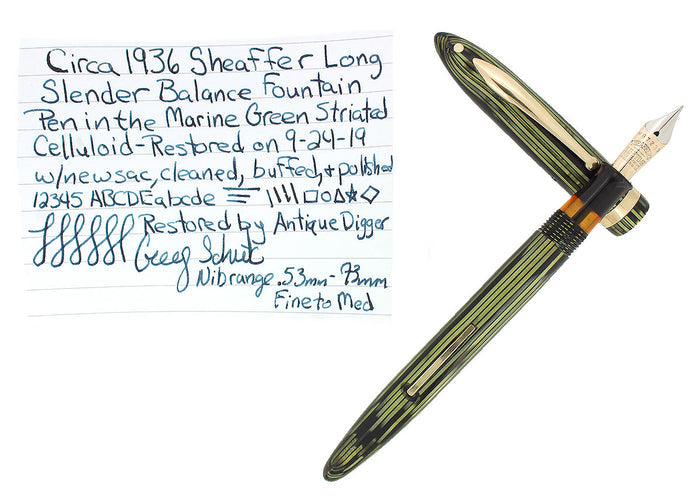 Circa 1936 Sheaffer Long
Slender Balance Fountain
Pen in the Marine Green Striated
Celluloid-Restored on 9-24-19
w/new sac, cleaned, buffed, + polished
12345 ABCDE abcde
Restored by Antique Digger
Nib range .53mm - .73mm
Fine to Med